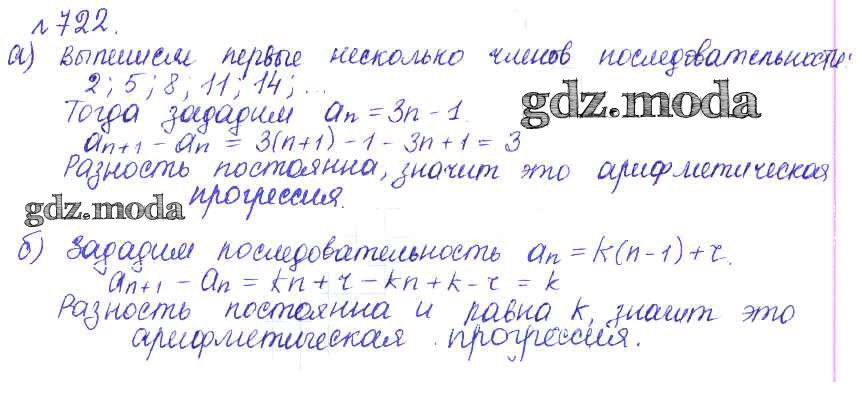 №722.
а) Выпешием первые несколько членов последовательности:
2; 5; 8; 11; 14; ...
Тогда зададим aₙ = 3n - 1.
gdz.moda
aₙ₊₁ - aₙ = 3(n+1) - 1 - 3n + 1 = 3
Разность постоянна, значит это арифметическая
gdz.moda
прогрессия.
б) Зададим последовательность aₙ = k(n-1) + r.
aₙ₊₁ - aₙ = kn + r - kn + k - r = k
Разность постоянна и равна k, значит это
арифметическая прогрессия.